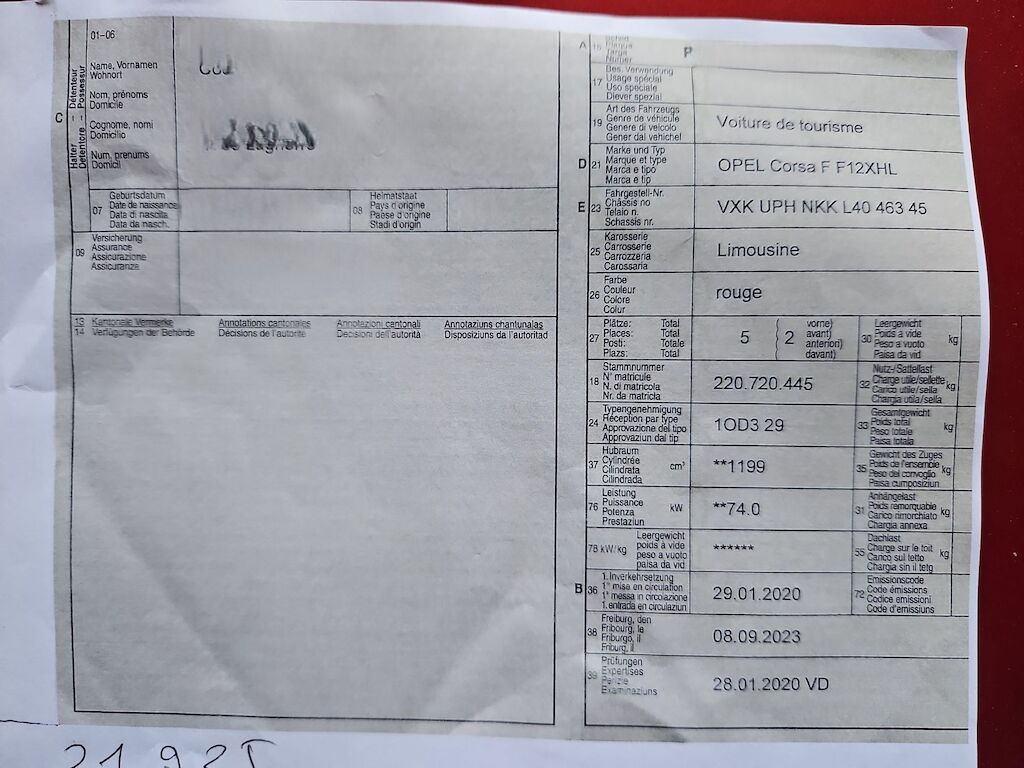 01-06
Name, Vornamen
Wohnort
Nom, prénoms
Domicile
Cognome, nomi
Domicilio
Num, prenums
Domicil
C
Halter – Détenteur
Detentore – Possessur
07
Geburtsdatum
Date de naissance
Data di nascita
Data da nasch.
08
Heimatstaat
Pays d'origine
Paese d'origine
Stadi d'origin
09
Versicherung
Assurance
Assicurazione
Assicuranza
13 Kantonale Vermerke Annotations cantonales Annotazioni cantonali Annotaziuns chantunalas
14 Verfügungen der Behörde Décisions de l'autorité Decisioni dell'autorità Disposiziuns da l'autoritad
A 15
Schild
Plaque
Targa
Numer
P
17
Bes. Verwendung
Usage spécial
Uso speciale
Diever spezial
19
Art des Fahrzeugs
Genre de véhicule
Genere di veicolo
Gener dal vehichel
Voiture de tourisme
D 21
Marke und Typ
Marque et type
Marca e tipo
Marca e tip
OPEL Corsa F F12XHL
E 23
Fahrgestell-Nr.
Châssis no
Telaio n.
Schassis nr.
VXK UPH NKK L40 463 45
25
Karosserie
Carrosserie
Carrozzeria
Carossaria
Limousine
26
Farbe
Couleur
Colore
Colur
rouge
27
Plätze: Total
Places: Total
Posti: Totale
Plazs: Total
5 2
vorne)
avant)
anteriori)
davant)
30
Leergewicht
Poids à vide
Peso a vuoto
Paisa da vid
kg
18
Stammnummer
N° matricule
N. di matricola
Nr. da matricla
220.720.445
32
Nutz-/Sattellast
Charge utile/sellette
Carico utile/sella
Chargia utila/sella
kg
24
Typengenehmigung
Réception par type
Approvazione del tipo
Approvaziun dal tip
1OD3 29
33
Gesamtgewicht
Poids total
Peso totale
Paisa totala
kg
37
Hubraum
Cylindrée
Cilindrata
Cilindrada
cm³
**1199
35
Gewicht des Zuges
Poids de l'ensemble
Peso del convoglio
Paisa cumposiziun
kg
76
Leistung
Puissance
Potenza
Prestaziun
kW
**74.0
31
Anhängelast
Poids remorquable
Carico rimorchiato
Chargia annexa
kg
78 kW/kg
Leergewicht
poids à vide
peso a vuoto
paisa da vid
******
55
Dachlast
Charge sur le toit
Carico sul tetto
Chargia sin il tetg
kg
B 36
1. Inverkehrsetzung
1re mise en circulation
1a messa in circolazione
1. entrada en circulaziun
29.01.2020
72
Emissionscode
Code émissions
Codice emissioni
Code d'emissiuns
38
Freiburg, den
Fribourg, le
Friburgo, il
Friburg, il
08.09.2023
39
Prüfungen
Expertises
Perizie
Examinaziuns
28.01.2020 VD